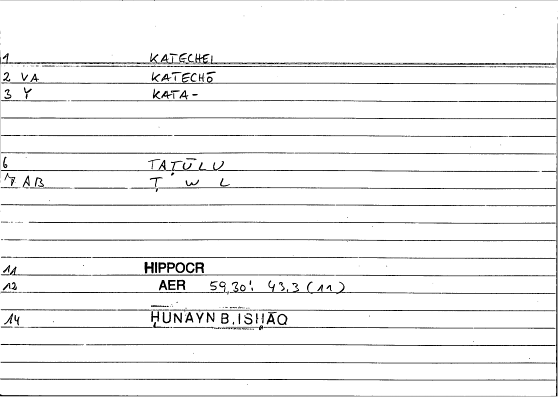 1 KATECHEI
2 VA KATECHŌ
3 Y KATA-
6 TAṬŪLU
7 AB Ṭ W L
11 HIPPOCR
12 AER 59,30: 43,3 (11)
14 ḤUNAYN B. ISḤĀQ